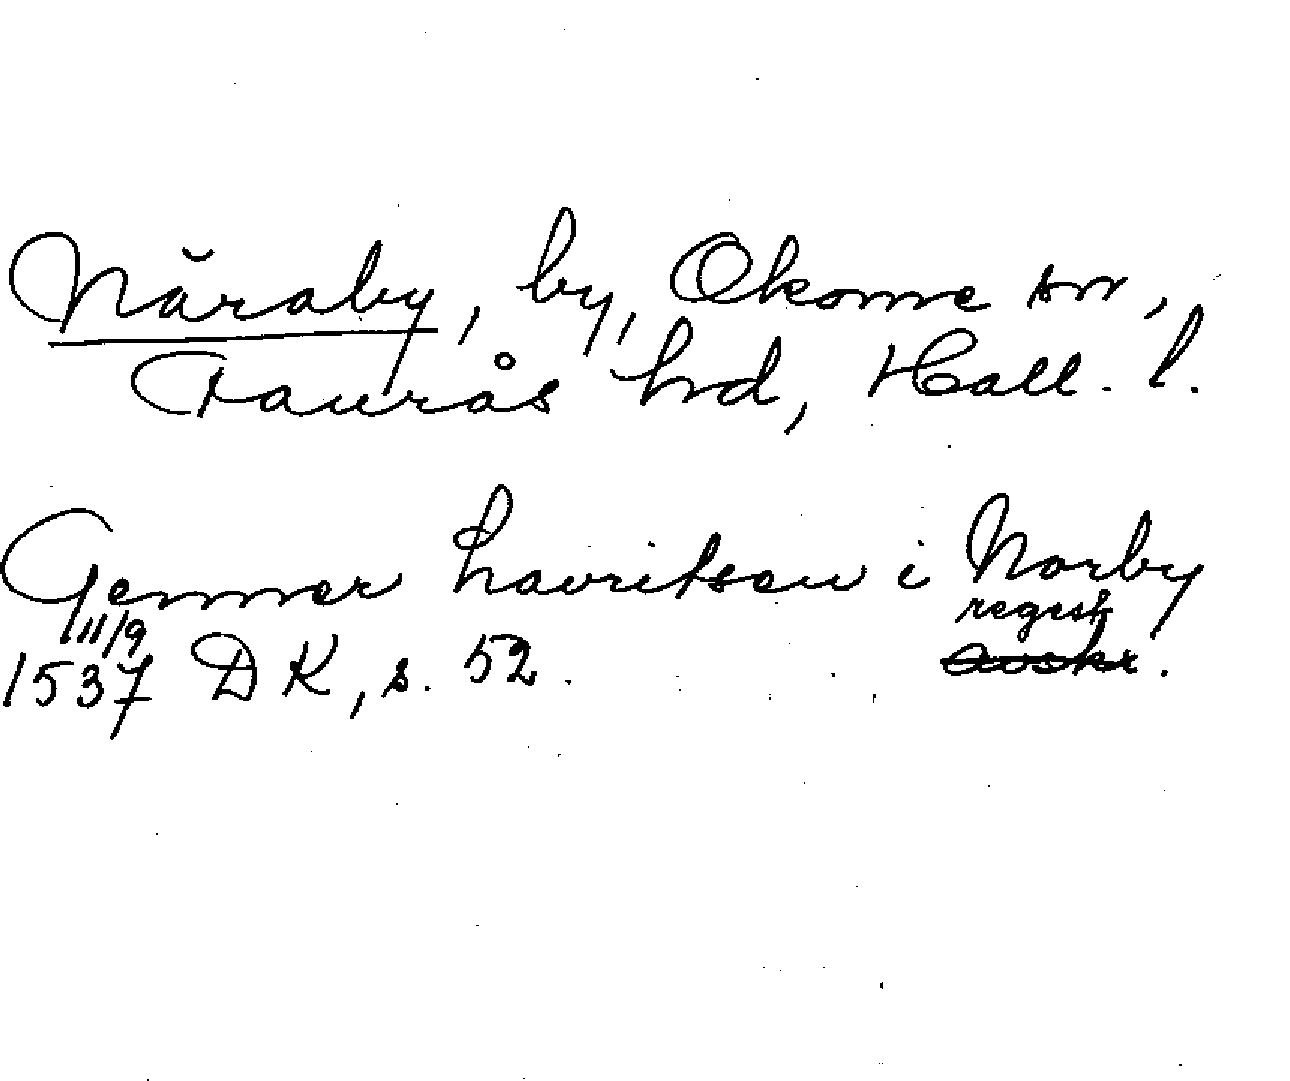 Năraby, by, Okome sn,
Faurås hd, Hall. l.
Gemmer Lavritsen i Norby
11/9 regest
1537 DK, s. 52. avskr.